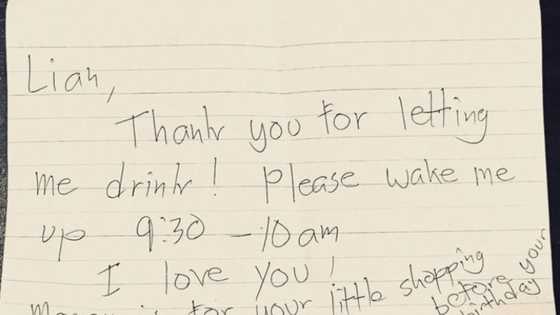 Lian,
Thank you for letting
me drink! Please wake me
up 9:30 – 10 am
I love you!
for your little shopping
before your
birthday